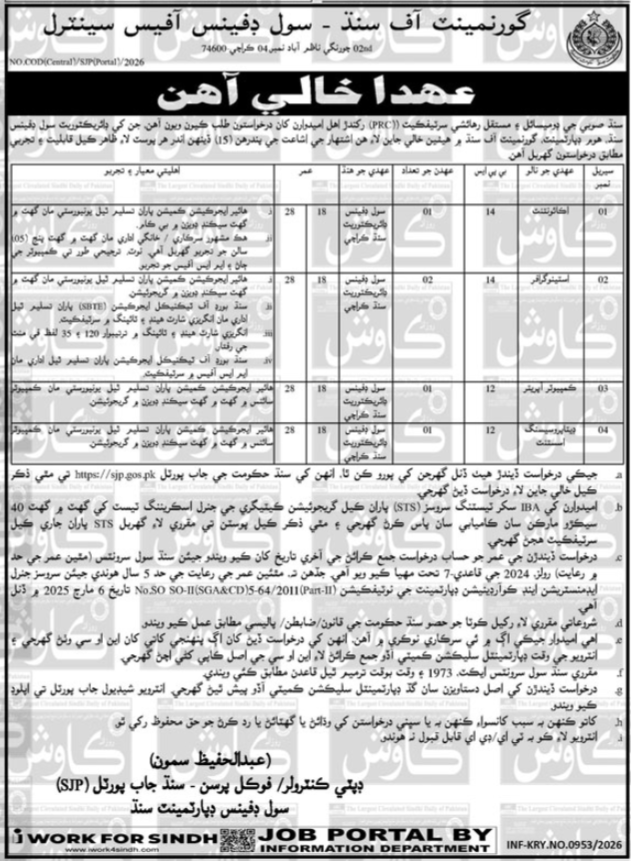 گورنمينٽ آف سنڌ - سول ڊفينس آفيس سينٽرل
02nd چورنگي ناظم آباد نمبر 04 ڪراچي 74600
NO.COD(Central)/SJP(Portal)/2026
عهدا خالي آهن
سنڌ صوبي جي ڊوميسائل ۽ مستقل رهائشي سرٽيفڪيٽ (PRC)) رکندڙ اهل اميدوارن کان درخواستون طلب ڪيون ويون آهن، جن کي ڊائريڪٽوريٽ سول ڊفينس
سنڌ، هوم ڊپارٽمينٽ، گورنمينٽ آف سنڌ ۾ هيٺين خالي جاين لاءِ هن اشتهار جي اشاعت جي پندرهن (15) ڏينهن اندر هر پوسٽ لاءِ ظاهر ڪيل قابليت ۽ تجربي
مطابق درخواستون گهربل آهن.
سيريل نمبر عهدي جو نالو بي پي ايس عهدن جو تعداد عهدي جو هنڌ عمر اهليتي معيار ۽ تجربو
01 اڪائونٽنٽ 14 01 سول ڊفينس ڊائريڪٽوريٽ سنڌ ڪراچي 18 28
i. هائير ايجوڪيشن ڪميشن پاران تسليم ٿيل يونيورسٽي مان گهٽ ۾
گهٽ سيڪنڊ ڊويزن ۾ بي ڪام.
ii. هڪ مشهور سرڪاري / خانگي اداري مان گهٽ ۾ گهٽ پنج (05)
سالن جو تجربو گهربل آهي. نوٽ: ترجيحي طور تي ڪمپيوٽر جي
ڄاڻ ۽ ايم ايس آفيس جو تجربو.
02 اسٽينوگرافر 14 02 سول ڊفينس ڊائريڪٽوريٽ سنڌ ڪراچي 18 28
i. هائير ايجوڪيشن ڪميشن پاران تسليم ٿيل يونيورسٽي مان گهٽ ۾
گهٽ سيڪنڊ ڊويزن ۾ گريجوئيشن.
ii. سنڌ بورڊ آف ٽيڪنيڪل ايجوڪيشن (SBTE) پاران تسليم ٿيل
اداري مان انگريزي شارٽ هينڊ ۽ ٽائپنگ ۾ سرٽيفڪيٽ.
iii. انگريزي شارٽ هينڊ ۽ ٽائپنگ ۾ ترتيبوار 120 ۽ 35 لفظ في منٽ
جي رفتار.
iv. سنڌ بورڊ آف ٽيڪنيڪل ايجوڪيشن پاران تسليم ٿيل اداري مان
ايم ايس آفيس ۾ سرٽيفڪيٽ.
03 ڪمپيوٽر آپريٽر 12 01 سول ڊفينس ڊائريڪٽوريٽ سنڌ ڪراچي 18 28
هائير ايجوڪيشن ڪميشن پاران تسليم ٿيل يونيورسٽي مان ڪمپيوٽر
سائنس ۾ گهٽ ۾ گهٽ سيڪنڊ ڊويزن ۾ گريجوئيشن.
04 ڊيٽاپروسيسنگ اسسٽنٽ 12 01 سول ڊفينس ڊائريڪٽوريٽ سنڌ ڪراچي 18 28
هائير ايجوڪيشن ڪميشن پاران تسليم ٿيل يونيورسٽي مان ڪمپيوٽر
سائنس ۾ گهٽ ۾ گهٽ سيڪنڊ ڊويزن ۾ گريجوئيشن.
a. جيڪي درخواست ڏيندڙ هيٺ ڏنل گهرجن کي پورو ڪن ٿا، انهن کي سنڌ حڪومت جي جاب پورٽل https://sjp.gos.pk تي مٿي ذڪر
ڪيل خالي جاين لاءِ درخواست ڏيڻ گهرجي.
b. اميدوارن کي IBA سکر ٽيسٽنگ سروسز (STS) پاران ڪيل گريجوئيشن ڪيٽيگري جي جنرل اسڪريننگ ٽيسٽ کي گهٽ ۾ گهٽ 40
سيڪڙو مارڪن سان ڪاميابي سان پاس ڪرڻ گهرجي ۽ مٿي ذڪر ڪيل پوسٽن تي مقرري لاءِ گهربل STS پاران جاري ڪيل
سرٽيفڪيٽ هجڻ گهرجي.
c. درخواست ڏيندڙن جي عمر جو حساب درخواست جمع ڪرائڻ جي آخري تاريخ کان ڪيو ويندو جيئن سنڌ سول سرونٽس (مٿين عمر جي حد
۾ رعايت) رولز، 2024 جي قاعدي-7 تحت مهيا ڪيو ويو آهي. جڏهن ته مٿئين عمر جي رعايت جي حد 5 سال هوندي جيئن سروسز جنرل
ايڊمنسٽريشن اينڊ ڪوآرڊينيشن ڊپارٽمينٽ جي نوٽيفڪيشن No.SO SO-II(SGA&CD)5-64/2011(Part-II) تاريخ 6 مارچ 2025 ۾ ڏنل
آهي.
d. شروعاتي مقرري لاءِ رکيل ڪوٽا جو حصو سنڌ حڪومت جي قانون/ضابطن/ پاليسي مطابق عمل ڪيو ويندو
e. اهي اميدوار جيڪي اڳ ۾ ئي سرڪاري نوڪري ۾ آهن، انهن کي درخواست ڏيڻ کان اڳ پنهنجي کاتي کان اين او سي وٺڻ گهرجي ۽
انٽرويو جي وقت ڊپارٽمينٽل سليڪشن ڪميٽي آڏو جمع ڪرائڻ لاءِ اين او سي جي اصل ڪاپي کڻي اچڻ گهرجي.
f. مقرري سنڌ سول سرونٽس ايڪٽ، 1973 ۽ وقت بوقت ترميم ٿيل قاعدن مطابق ڪئي ويندي.
g. درخواست ڏيندڙن کي اصل دستاويزن سان گڏ ڊپارٽمينٽل سليڪشن ڪميٽي آڏو پيش ٿيڻ گهرجي. انٽرويو شيڊيول جاب پورٽل تي اپلوڊ
ڪيو ويندو
h. کاتو ڪنهن به سبب کانسواءِ ڪنهن به يا سڀني درخواستن کي وڌائڻ يا گهٽائڻ يا رد ڪرڻ جو حق محفوظ رکي ٿو.
i. انٽرويو لاءِ ڪو به ٽي اي/ڊي اي قابل قبول نه هوندو
(عبدالحفيظ سمون)
ڊپٽي ڪنٽرولر/ فوڪل پرسن - سنڌ جاب پورٽل (SJP)
سول ڊفينس ڊپارٽمينٽ سنڌ
WORK FOR SINDH
www.iwork4sindh.com
JOB PORTAL BY
INFORMATION DEPARTMENT
INF-KRY.NO.0953/2026